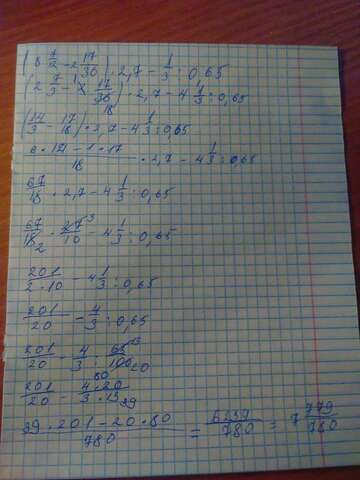 (8 7/2 - 2 17/36) · 2,7 - 1/3 : 0,65
(2 7/3 - 1 17/36 18) · 2,7 - 4 1/3 : 0,65
(14/3 - 17/18) · 2,7 - 4 1/3 : 0,65
6 · 14 - 1 · 17/18 · 2,7 - 4 1/3 : 0,65
67/18 · 2,7 - 4 1/3 : 0,65
67/18 2 · 27 3/10 - 4 1/3 : 0,65
201/2 · 10 - 4 1/3 : 0,65
201/20 - 4/3 : 0,65
201/20 - 4/3 : 65 13/100 20
201/20 - 4 · 20 80/3 · 13 39
39 · 201 - 20 · 80/780 = 6239/780 = 7 779/780